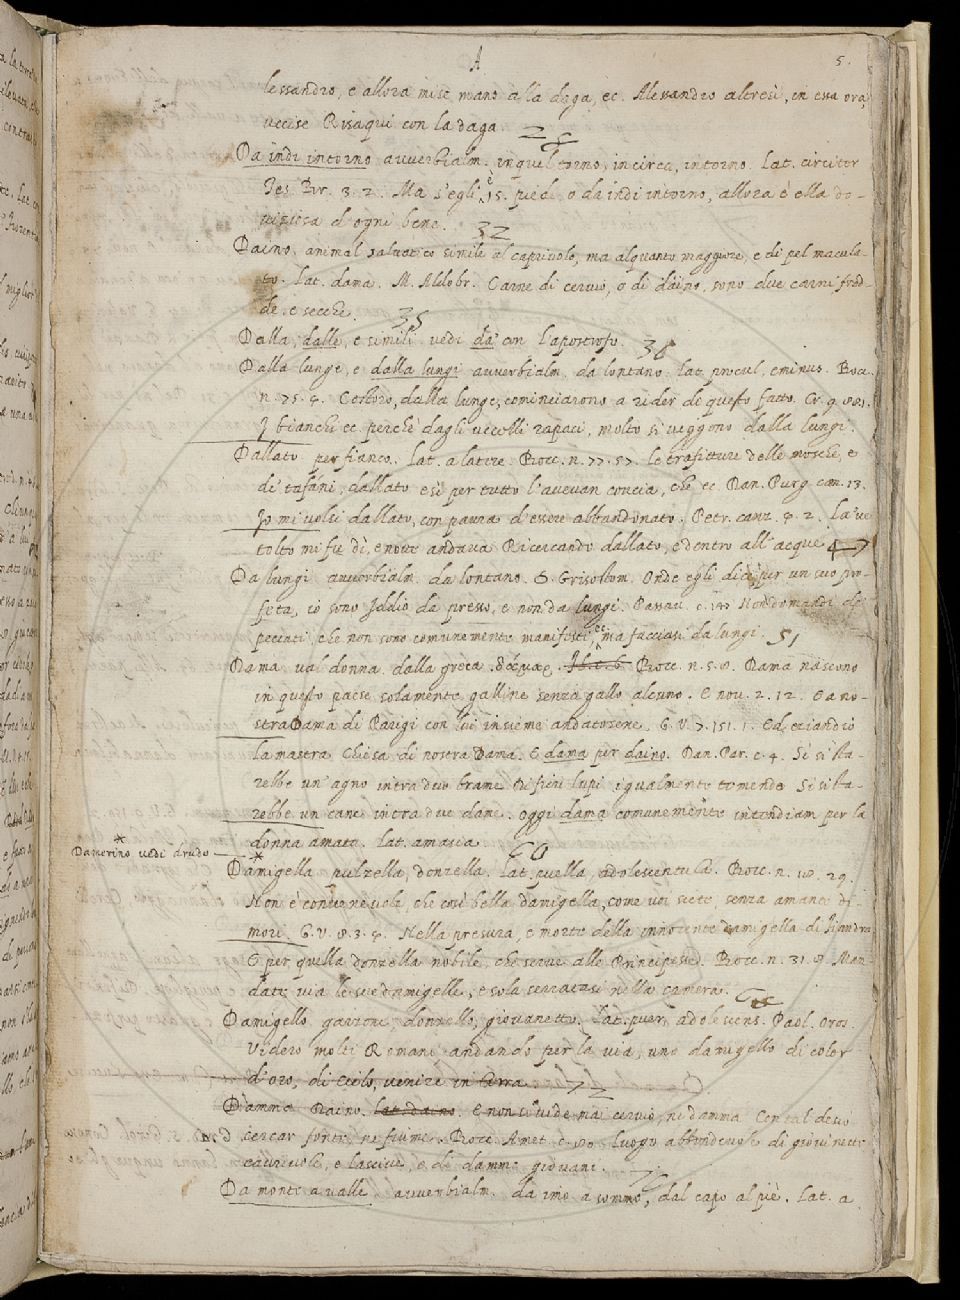 A
5.
lessandro, e allora mise mano alla daga, ec. Alessandro altresì, in essa ora,
uccise Risaqui con la daga. 25
Da indi intorno avverbialm. in quel torno, in circa, intorno. Lat. circiter
Tes. Br. 3. 2. Ma s'egli è 15. piedi, o da indi intorno, allora è ella do-
viziosa d'ogni bene. 32
Daino. animal salvatico simile al capriuolo, ma alquanto maggiore, e di pel macula-
to. Lat. dama. M. Aldobr. Carne di cervio, o di daino, sono due carni fred-
de, e secche. 35
Dalla, dalle, e simili vedi da' con l'apostrofo. 36
Dalla lunge, e dalla lungi avverbialm. da lontano. Lat. procul, eminus. Bocc.
n. 75. 4. Costoro, dalla lunge, cominciarono a rider di questo fatto. Cr. 9. 88. 1.
I bianchi ec. perchè dagli uccelli rapaci, molto si veggono dalla lungi.
Dallato per fianco. Lat. a latere. Bocc. n. 77. 57. le trafitture delle mosche, e
di tafani, dallato e sì per tutto l'avevan concia, che ec. Dan. Purg. can. 13.
Io mi volsi dallato, con paura d'essere abbandonato. Petr. canz. 4. 2. La ve
tolto mi fu dì, e notte andava Ricercando dallato, e dentro all'acque 47
Da lungi avverbialm. da lontano. S. Grisostom. Onde egli dice per un suo pro-
feta, io sono Iddio da presso, e non da lungi. Passav. c. 140 Non domandi de'
peccati, che non sono comunemente manifesti, ec. ma facciasi da lungi. 51
Dama val donna dalla greca δάμαρ. Bocc. n. 5. 8. Dama nascono
in questo paese solamente galline senza gallo alcuno. E nov. 2. 12. E a no-
stra Dama di Parigi con lui insieme andatosene. G. V. 7. 151. 1. Ed eziandio
la mastra Chiesa di nostra Dama. E dama per daino. Dan. Par. c. 4. Sì si sta-
rebbe un agno intra duo brame Di fieri lupi igualmente temendo Sì si sta-
rebbe un cane intra due dame. Oggi dama comunemente intendiam per la
donna amata. Lat. amasia. 60
* Damerino vedi drudo
* Damigella pulzella, donzella. Lat. puella, adolescentula. Bocc. n. 18. 29.
Non è convenevole, che così bella damigella, come voi siete, senza amante di-
mori. G. V. 8. 3. 4. Nella presura, e morte della innocente damigella di Fiandra
E per quella donzella nobile, che serve alle Principesse. Bocc. n. 31. 8. Man-
date via le sue damigelle, e sola serratasi nella camera.
Damigello garzone, donzello, giovanetto. Lat. puer, adolescens. Paol. Oros.
Videro molti Romani, andando per la via, uno damigello di color
d'oro, di Cielo, venire in terra 72
Damma Daino. Lat. daino. E non si vide mai cervio, nè damma Con tal disio
cercar fonte, nè fiume. Bocc. Amet. c. 80. Luogo abbondevole di giovinetti
cavrivoli, e lascivi, e di damme giovani.
Da monte a valle avverbialm. da imo a sommo, dal capo al piè. Lat. a